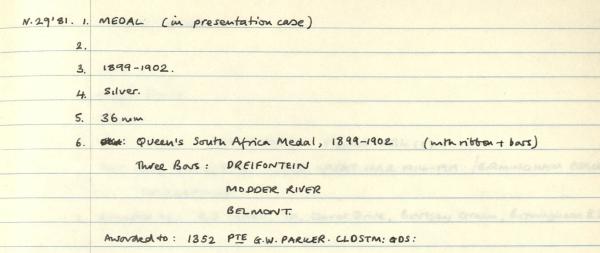 N.29'81. 1. MEDAL (in presentation case)
2.
3. 1899-1902.
4. Silver.
5. 36mm
6. Queen's South Africa Medal, 1899-1902 (with ribbon + bars)
Three Bars: DREIFONTEIN
MODDER RIVER
BELMONT.
Awarded to: 1352 PTE G.W. PARKER. CLDSTM: GDS: